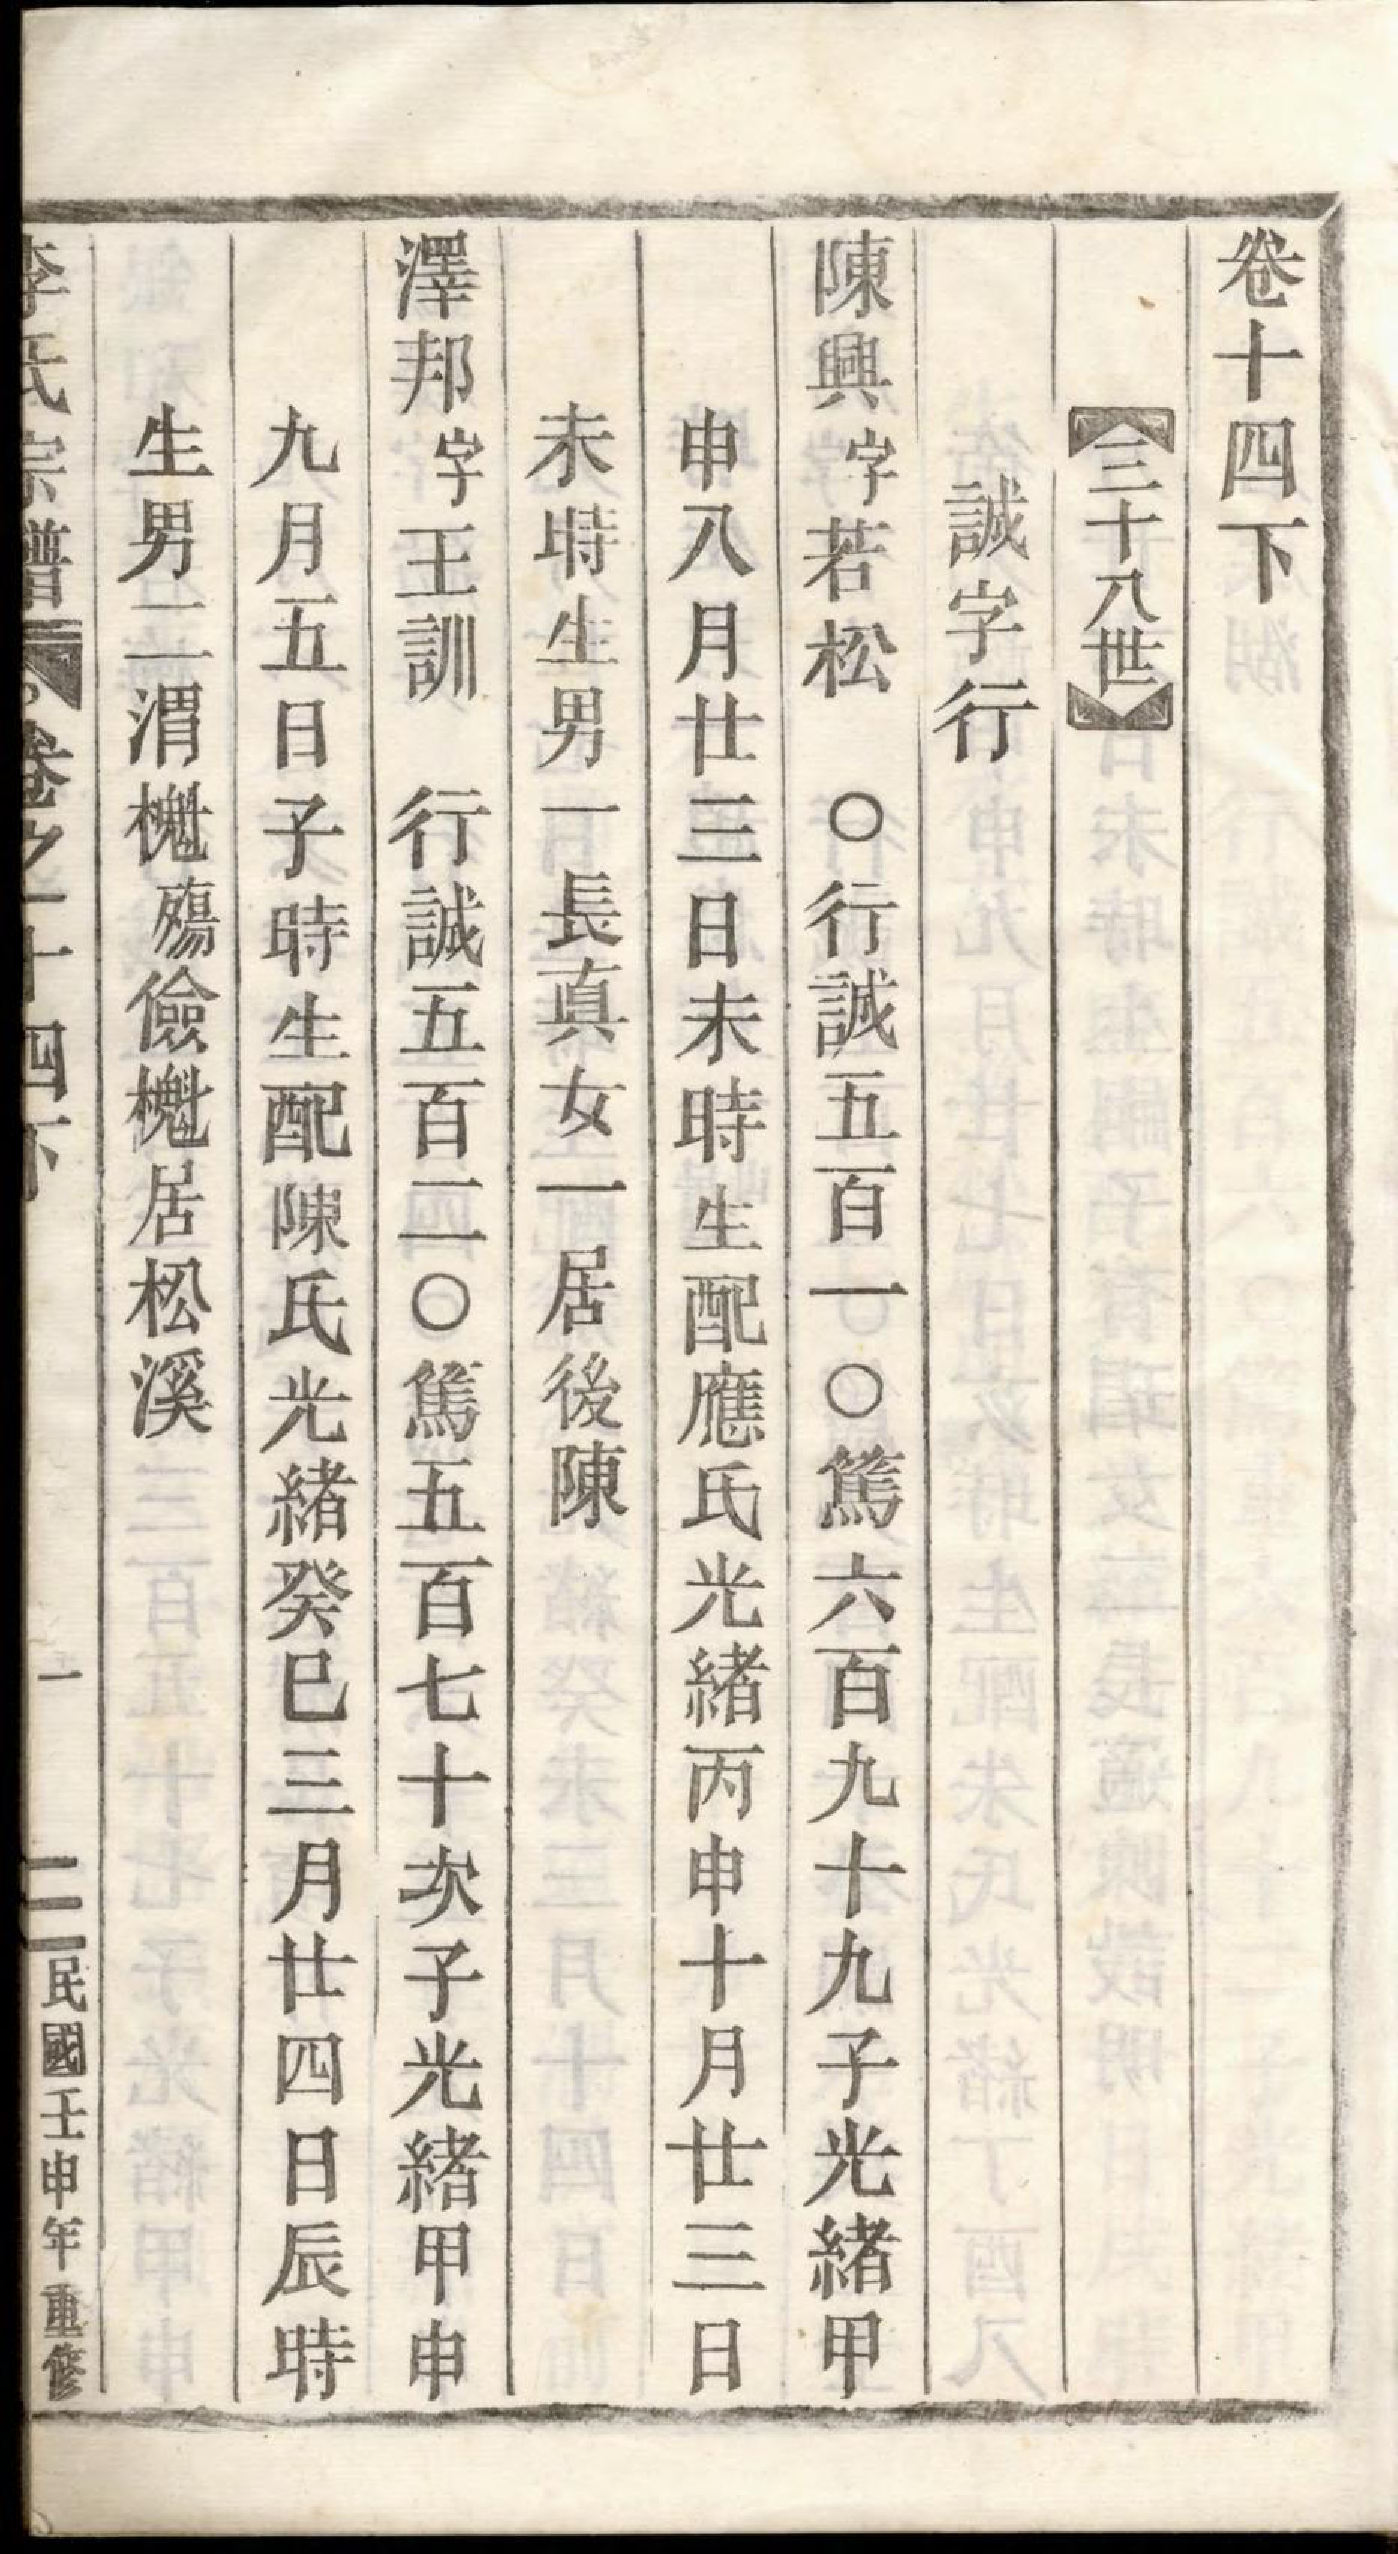 卷十四下
三十八世
誠字行
陳興字若松 ○行誠五百一○篤六百九十九子光緒甲
申八月廿三日未時生配應氏光緒丙申十月廿三日
未時生男一長真女一居後陳
澤邦字王訓 行誠五百二○篤五百七十次子光緒甲申
九月五日子時生配陳氏光緒癸巳三月廿四日辰時
生男二渭櫆殤儉櫆居松溪
李氏宗譜 卷之十四下 一 民國壬申年重修